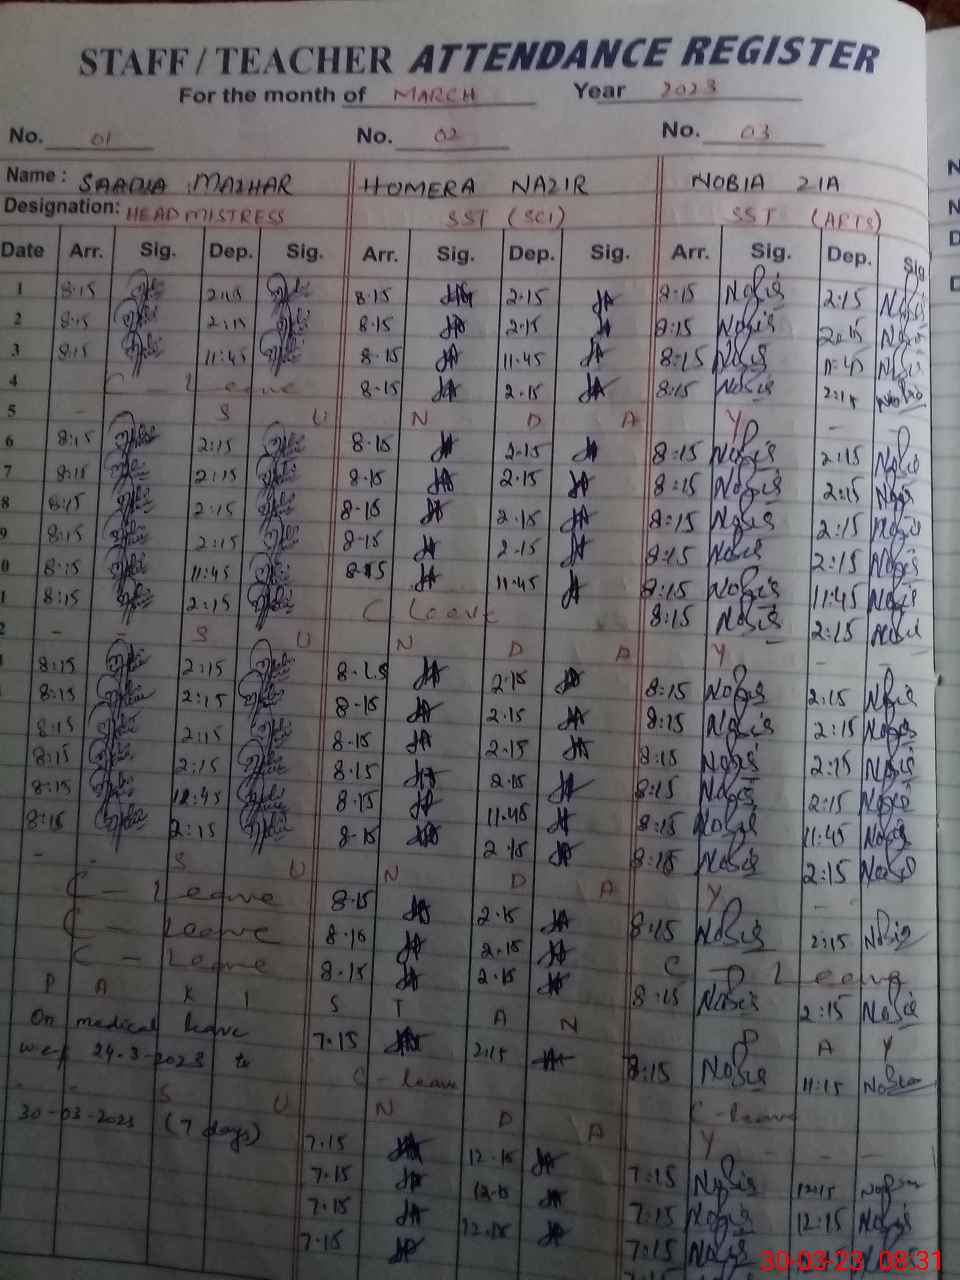 STAFF / TEACHER ATTENDANCE REGISTER
For the month of MARCH Year 2023
No. 01 No. 02 No. 03
Name : SAADIA MAZHAR HOMERA NAZIR NOBIA ZIA
Designation: HEADMISTRESS SST (SCI) SST (ARTS)
Date Arr. Sig. Dep. Sig. Arr. Sig. Dep. Sig. Arr. Sig. Dep. Sig.
1 8:15 2:15 8.15 2.15 8:15 Nobia 2:15 Nobia
2 8:15 2:15 8.15 2.15 8:15 Nobia 2:15 Nobia
3 8:15 11:45 8.15 11.45 8:15 Nobia 11:45 Nobia
4 C - Leave 8.15 2.15 8:15 Nobia 2:15 Nobia
5 - S U N D A Y - -
6 8:15 2:15 8.15 2.15 8:15 Nobia 2:15 Nobia
7 8:15 2:15 8.15 2.15 8:15 Nobia 2:15 Nobia
8 8:15 2:15 8.15 2.15 8:15 Nobia 2:15 Nobia
9 8:15 2:15 8.15 2.15 8:15 Nobia 2:15 Nobia
0 8:15 11:45 8.15 11.45 8:15 Nobia 11:45 Nobia
1 8:15 2:15 C Leave 8:15 Nobia 2:15 Nobia
2 - - S U N D A Y - -
8:15 2:15 8.15 2.15 8:15 Nobia 2:15 Nobia
8:15 2:15 8.15 2.15 8:15 Nobia 2:15 Nobia
8:15 2:15 8.15 2.15 8:15 Nobia 2:15 Nobia
8:15 2:15 8.15 2.15 8:15 Nobia 2:15 Nobia
8:15 8.15 11.45 8:15 Nobia 11:45 Nobia
8:15 2:15 8.15 2.15 8:15 Nobia 2:15 Nobia
- - S U N D A Y - -
C - Leave 8.15 2.15 8:15 Nobia 2:15 Nobia
C - Leave 8.15 2.15 C - Leave
C - Leave 8.15 2.15 8:15 Nobia 2:15 Nobia
P A K I S T A N D A Y
On medical leave 7.15 2:15 8:15 Nobia 11:15 Nobia
w.e.f 24-3-2023 to C - leave C - leave
- - S U N D A Y - -
30-03-2023 (7 days) 7.15 12.15 7:15 Nobia 12:15 Nobia
7.15 12.15 7:15 Nobia 12:15 Nobia
7.15 12.15 7:15 Nobia
7.15
30-03-23 08:31